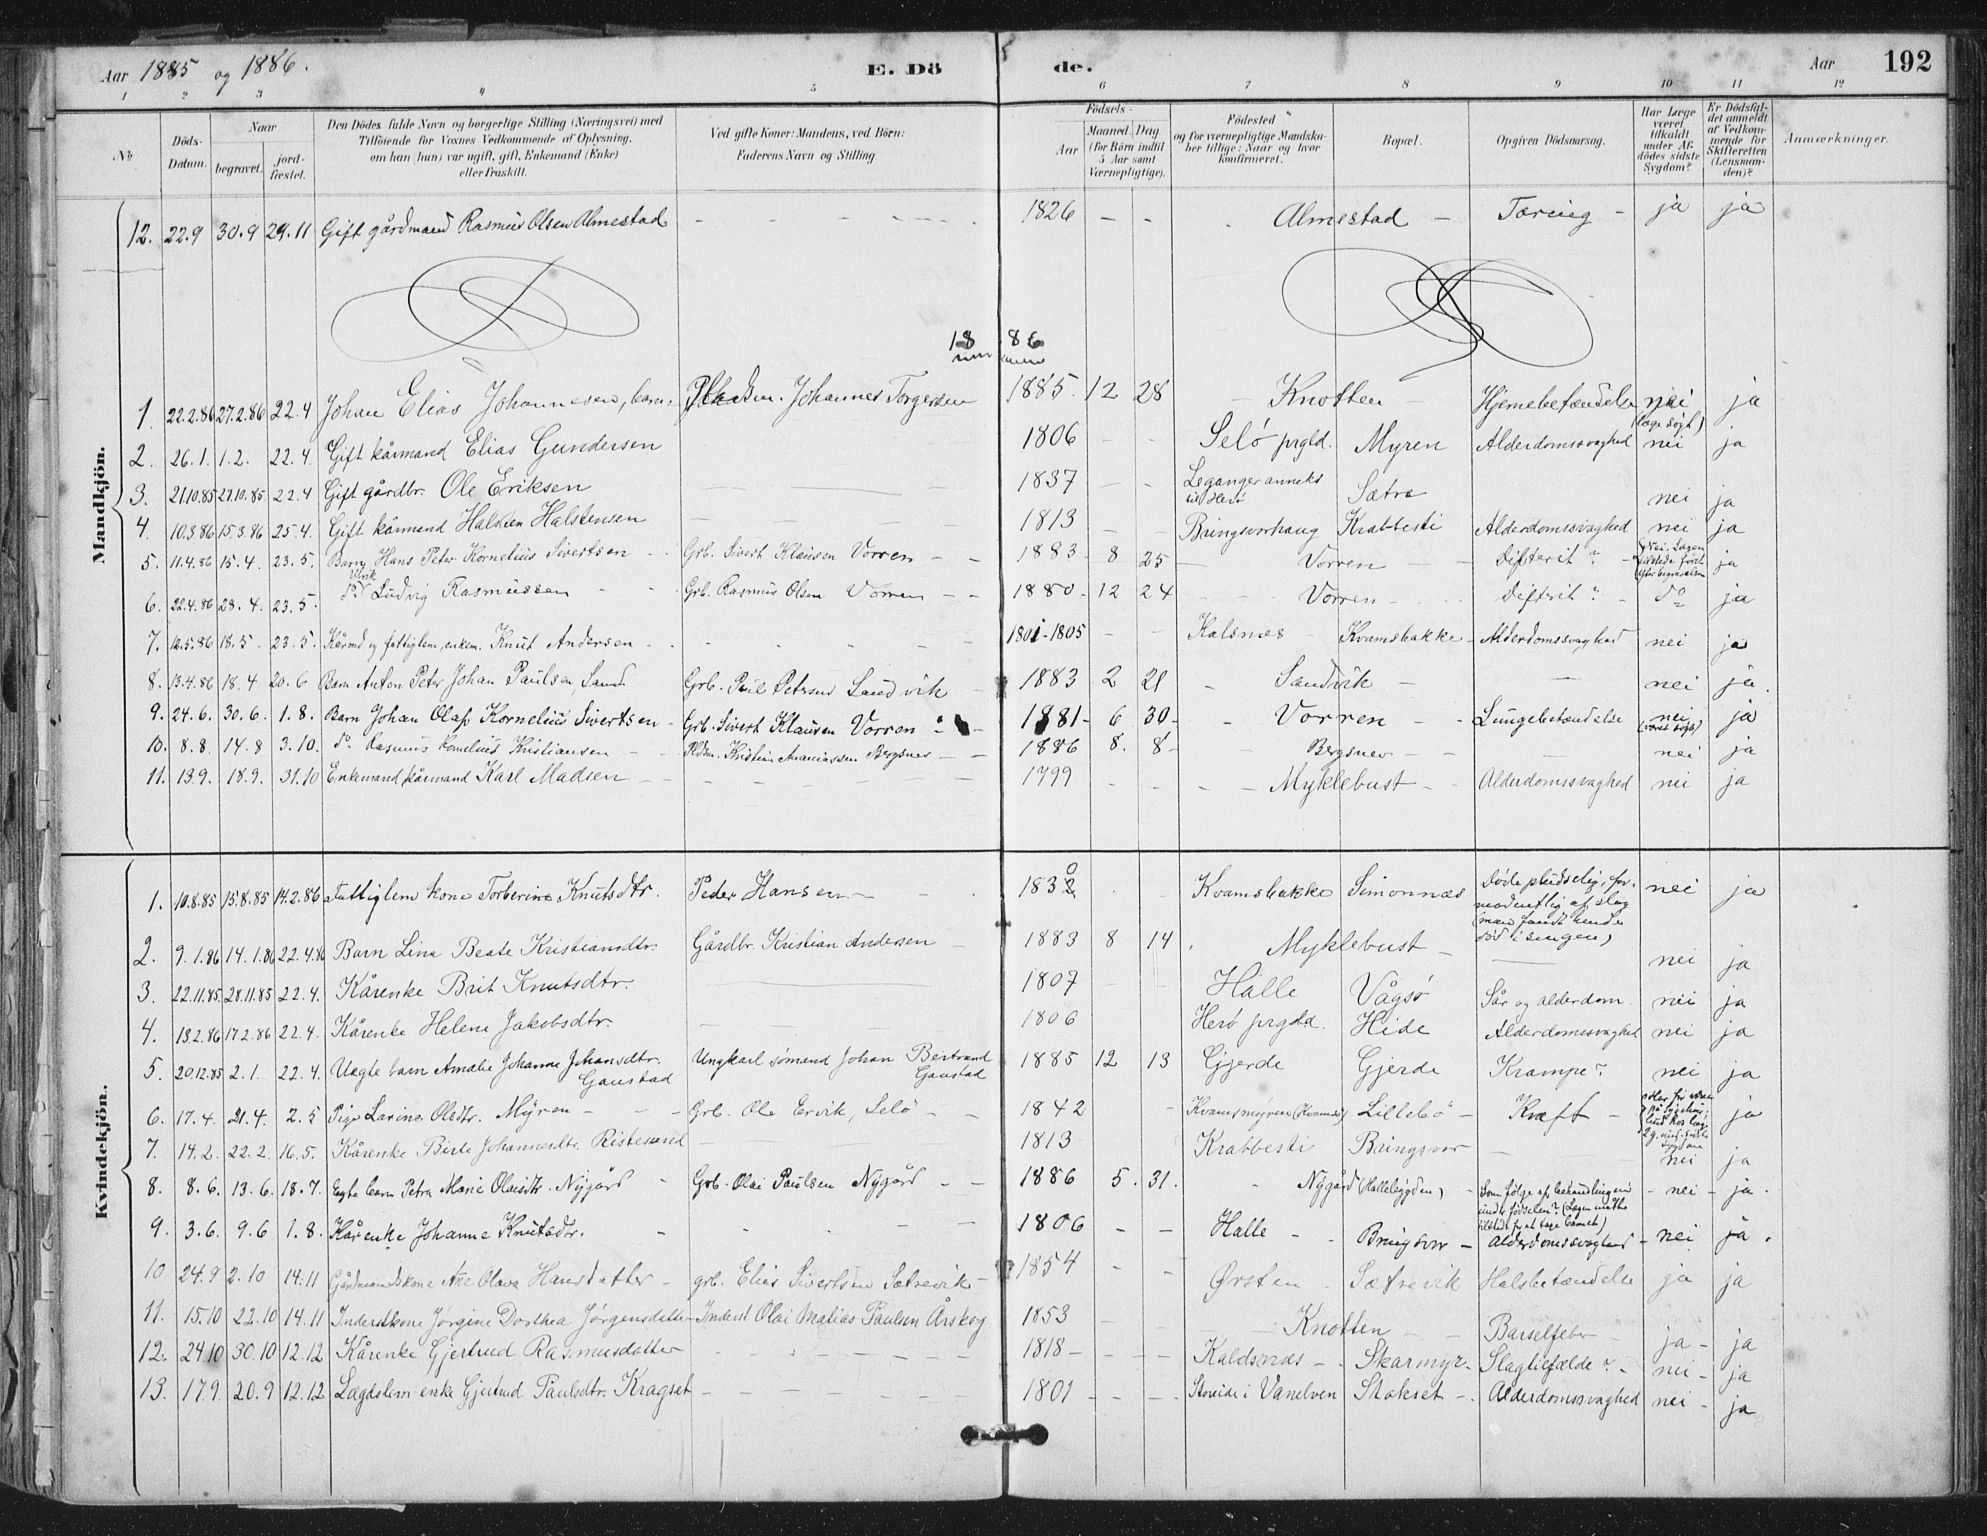 Aar 1885 og 1886. E. Dö de. Aar 192
1 2 3 4 5 6 7 8 9 10 11 12
No Döds-Datum. Naar begravet. jord-fæstet. Den Dödes fulde Navn og borgerlige Stilling (Næringsvei) med Tilföiende for Voxnes Vedkommende af Oplysning, om han (hun) var ugift, gift, Enkemand (Enke) eller fraskilt. Ved gifte Koner: Mandens, ved Börn: Faderens Navn og Stilling Födsels- Aar Maaned. Dag (for Börn indtil 5 Aar samt Værnepligtige). Födested og for værnepligtige Mandskaber tillige: Naar og hvor konfirmeret. Bopæl. Opgiven Dödsaarsag. Har Læge været tilkaldt under Afdödes sidste Sygdom? Er Dödsfaldet anmeldt af Vedkommende for Skifteretten (Lensmanden)? Anmærkninger.
Mandkjön.
12. 22.9 30.9 29.11 Gift gårdmand Rasmus Olsen Almestad - 1826 - - Almestad - Tæring - ja ja
1886
1. 22.2.86 27.2.86 22.4 Johan Elias Johannesen, barn, Pladsm. Johannes Torgersen 1885. 12 28 - Knotten - Hjernebetændelse nei (læge søgt) ja
2. 26.1. 1.2. 22.4. Gift kårmand Elias Gundersen 1806 - - Selö prgld. Myren Alderdomssvaghed nei ja
3. 21.10.85 27.10.85 22.4 Gift gårdbr. Ole Eriksen 1837 - - Leganger anneks til Herö Sætre nei ja
4. 10.3.86 15.3.86 25.4. Gift kårmand Halsten Halstensen 1813 - - Bringsvorhaug Krabbesti Alderdomssvaghed nei ja
5. 11.4.86 15.4. 23.5. Barn Hans Peter Kornelius Sivertsen - Grb. Sivert Klausen Vorren - - 1883 - 8 25 - Vorren - - Difterit? - Nei. Lægen tilstede først efter begravelsen ja
6. 22.4.86 28.4. 23.5. do Ulrik Ludvig Rasmussen - - Grb. Rasmus Olsen Vorren - - 1880 - 12 24 - Vorren - Difterit? - do ja
7. 12.5.86 18.5 - 23.5. Kårmd og fattiglem, enkem. Knut Andersen - - 1801-1805 - - Kalsnes - Kvamsbakke - Alderdomssvaghed nei ja
8. 13.4.86 18.4 20.6 Barn Anton Peter Johan Paulsen, Sand. Grb. Paul Petersen Sandvik - 1883 2 21 - Sandvik - - nei ja.
9. 24.6. 30.6. 1.8. Barn Johan Olaf Kornelius Sivertsen - Grb. Sivert Klausen Vorren - 1881 - 6 30 - - Vorren - - Lungebetændelse nei (været søgt) ja
10. 8.8. 14.8 3.10. do Rasmus Kornelius Kristiansen - - Pldsm. Kristian Ananiassen Bergsnev - - 1886 8. 8 - Bergsnev - - nei ja
11. 13.9. 18.9. 31.10 Enkemand, kårmand Karl Madsen - - 1799 - - - Myklebust - - Alderdomssvaghed nei ja
Kvindekjön.
1. 10.8.85 15.8.85 14.2.86 Fattiglem kone Torberine Knutsdtr. Peder Hansen - 1830 Kvamsbakke Simonnæs Døde pludselig, formodentlig af slag (man fandt hende død i sengen) nei ja
2. 9.1.86 14.1.86 22.4.86 Barn Lina Beate Kristiansdtr. Gårdbr. Kristian Andersen - 1883 8 14 Myklebust - nei ja
3. 22.11.85 28.11.85 22.4. Kårenke Brit Knutsdtr. 1807 Halle Vågsö Sår og alderdom. nei ja
4. 13.2.86 17.2.86 22.4. Kårenke Helene Jakobsdtr. 1806 Herö prgld. Hide Alderdomssvaghed nei ja
5. 20.12.85 2.1. 22.4. Uægte barn Amalie Johanne Johansdtr. Gaustad Ungkarl sømand Johan Bertrand Gaustad 1885 12 13 Gjerde Gjerde Krampe? nei ja
6. 17.4. 21.4. 2.5 Pige Larine Olsdtr. Myren - - Grb. Ole Ervik, Selö - - 1842 - Kvamsmyren (Kvamsö) Lillebö - Kræft - ja
7. 14.2. 22.2. 16.5. Kårenke Berte Johannesdtr. Ristesund - 1813 Krabbesti Bringsvor - - nei ja
8. 8.6. 13.6. 18.7. Egte barn Petra Marie Olaisdtr. Nygård - Grb. Olai Paulsen Nygård - - 1886 5. 31. - Nygård (Hallebygden) - Som følge af behandlingen under fødselen? (Lægen måtte tilstede for at tage barnet) - nei - ja.
9. 3.6. 9.6 1.8. Kårenke Johanne Knutsdtr. - 1806 - - Halle - - Bringsvor - Alderdomssvaghed - nei ja.
10 24.9 2.10 14.11 Gårdmandskone Ane Olava Hansdatter - grb. Elias Sivertsen Sætrevik - 1854 - - Ørsten - Sætrevik Halsbetændelse ja ja
11. 15.10 22.10 14.11 Inderstkone Jørgine Dorthea Jørgensdatter - Inderst Olai Matias Paulsen Årskog 1853 - - - Knotten - - Barselfeber - ja - ja
12. 24.10 30.10 12.12 Kårenke Gjertrud Rasmusdatter - 1818 - - - Kaldsnæs - - Skarmyr - Slagtilfælde? - nei - ja
13. 17.9. 20.9 12.12 Lægdslem enke Gjertrud Paulsdtr. Kragset - 1801 - - - Støreide i Vanelven Stokset - Alderdomssvaghed nei - ja